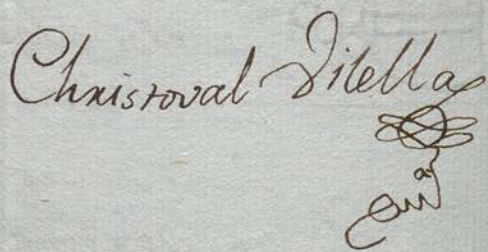 Christoval Vilella